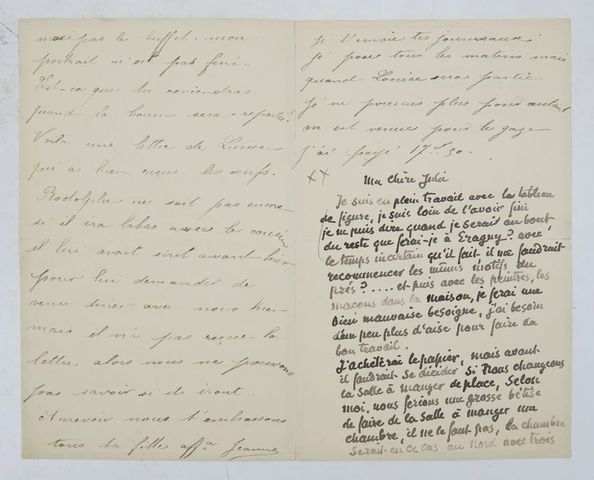 mais pas le buffet. mon
portrait n'est pas fini.
Est-ce que tu reviendras
quand la bonne sera repartie?
Voilà une lettre de Lucien
qui a bien reçu les œufs.
Rodolphe ne sait pas encore
si il ira labas avec le cousin
il lui avait écrit avant hier
pour lui demander de
venir diner avec nous hier
mais il n'a pas reçu la
lettre alors nous ne pouvons
pas savoir si ils iront.
Aurevoir nous t'embrassons
tous ta fille affnée Jeanne
je t'envoie tes journeaux
je pose tous les matins mais
quand Louise sera partie
je ne pourrais plus poser autant
on est venu pour le gaz
j'ai payé 17f 50.
Ma chère Julie
Je suis en plein travail avec les tableau
de figure, je suis loin de l'avoir fini
je ne puis dire quand je serais au bout
du reste que ferai-je à Eragny? avec
le temps incertain qu'il fait il me faudrait
recommencer les mêmes motifs du
près?..... et puis avec les peintres, les
macons dans la maison, je ferai une
bien mauvaise besogne, j'ai besoin
d'un peu plus d'aise pour faire du
bon travail.
J'achèterai le papier, mais avant
il faudrait se décider si nous changeons
la salle à manger de place, selon
moi, nous ferions une grosse bêtise
de faire de la salle à manger une
chambre, il ne le faut pas, la chambre
serait en ce cas au Nord avec trois